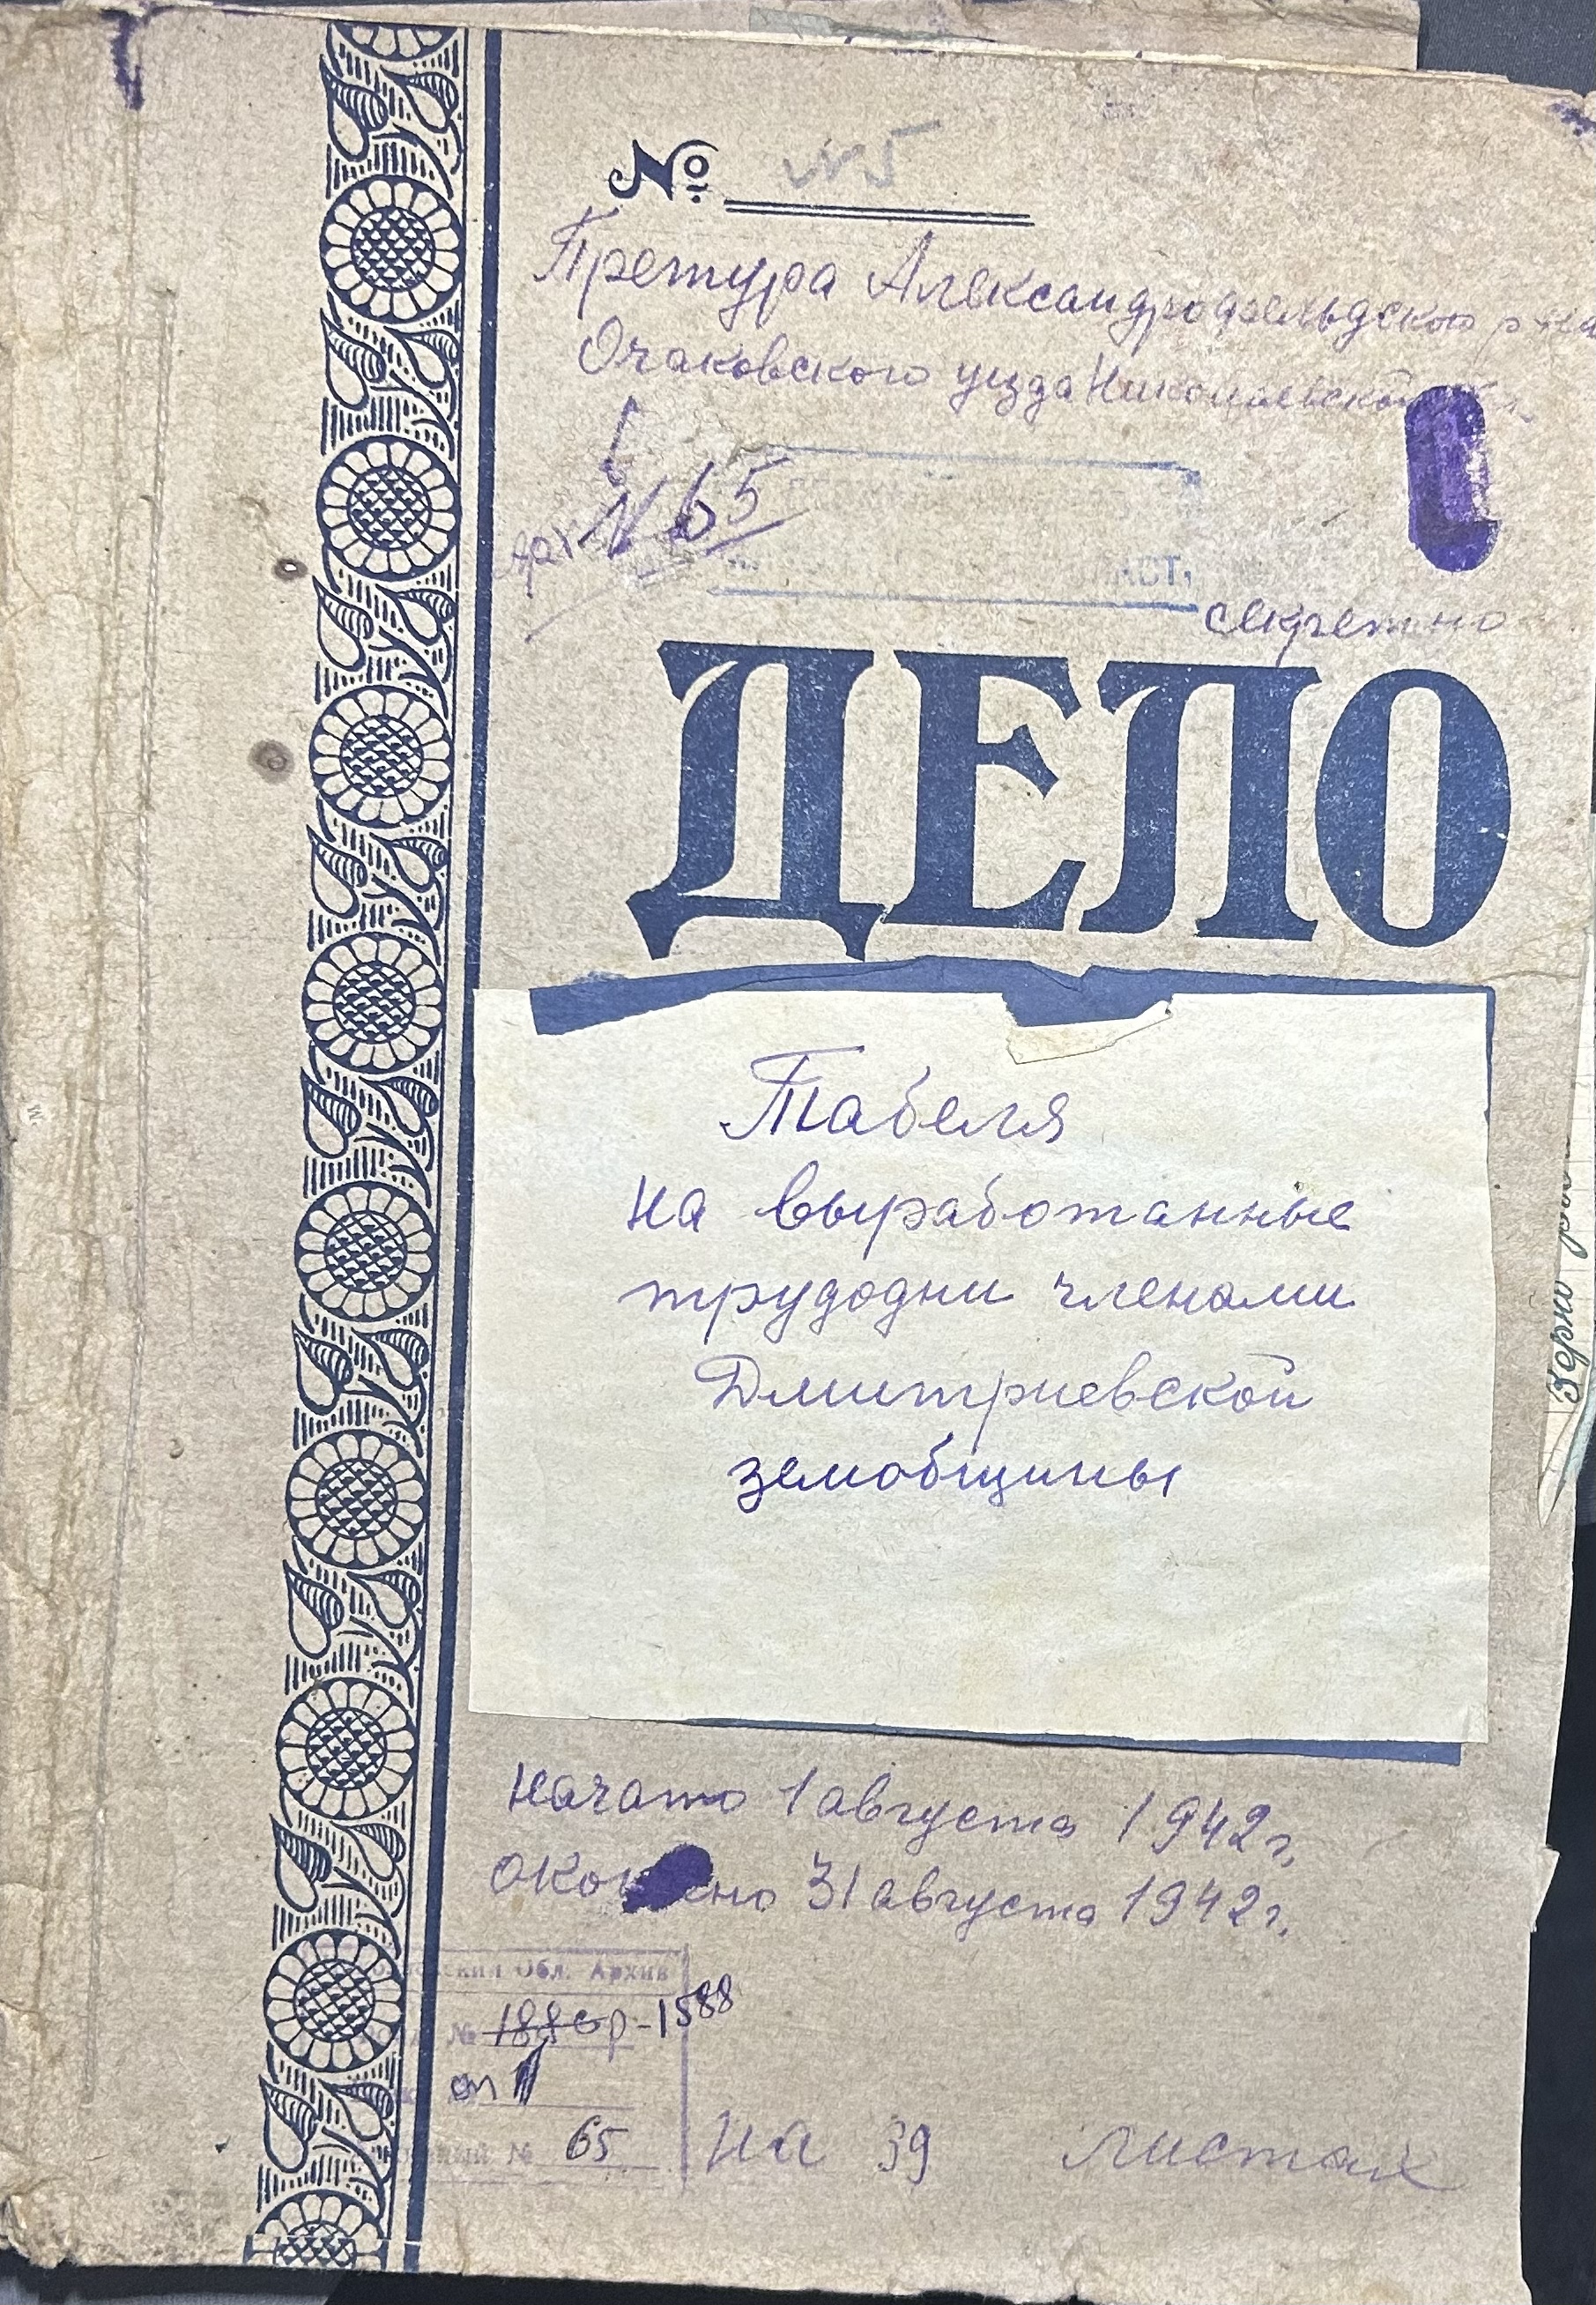 № 5
Претура Александрофельдского р-на
Очаковского уезда Николаевской
арх N 65
АСТ.
секретно
ДЕЛО
Табеля
на выработанные
трудодни членами
Дмитриевской
земобщины
Начато 1 августа 1942 г.
Око но 31 августа 1942 г.
Обл. Архив
№ р-1588
оп 1
№ 65
На 39 листах
Зерно